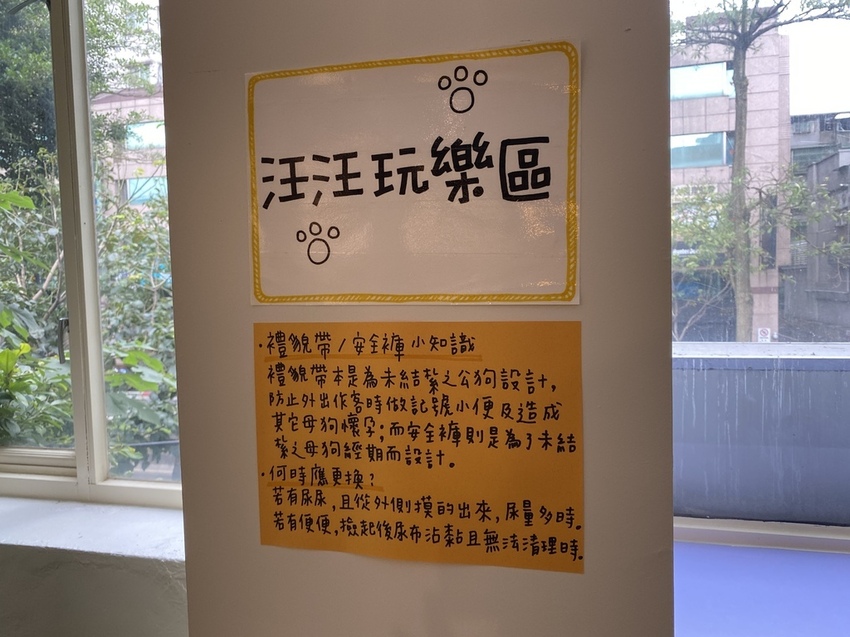 汪汪玩樂區
·禮貌帶/安全褲 小知識
禮貌帶本是為未結紮之公狗設計，
防止外出作客時做記號小便及造成
其它母狗懷孕；而安全褲則是為了未結
紮之母狗經期而設計。
·何時應更換？
若有尿尿，且從外側摸的出來，尿量多時。
若有便便，撿起後尿布沾黏且無法清理時。